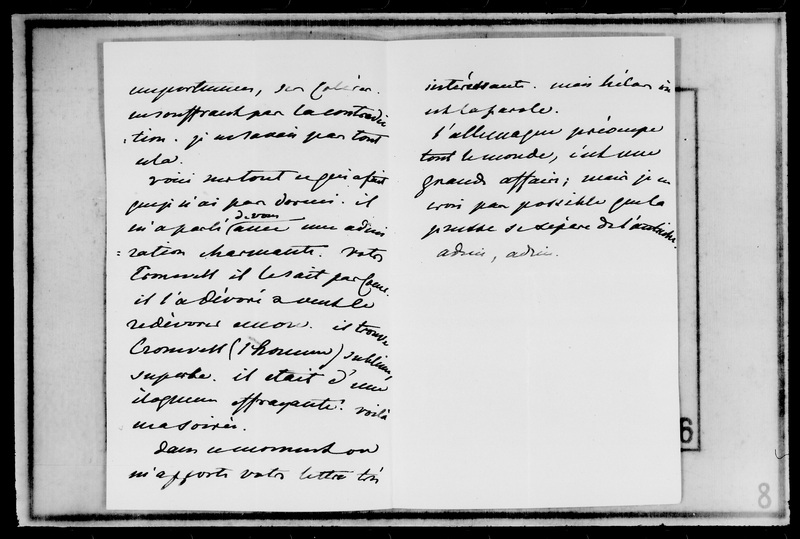 importunes, ses colères.
en souffrant par la contradic
:tion. je ne savais pas tout
cela.
voici surtout ce qui a fait
que je n'ai pas dormi. il
m'a parlé de vous avec une admi
:ration charmante. votre
Cromwell il le sait par coeur.
il l'a dévoré & veut le
redévorer encore. il trouve
Cromwell (l'homme) sublime,
superbe. il etait d'une
éloquence effrayante. voilà
ma soirée.
Dans ce moment on
m'apporte votre lettre très
intéressante. mais hélas
est la parole.
l'allemagne préoccupe
tout le monde, c'est une
grande affaire; mais je ne
crois pas possible que la
prusse se sépare de l'autriche.
adieu, adieu.
6
8